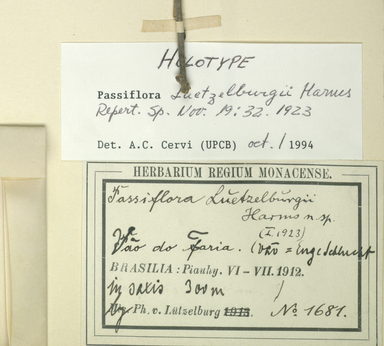 HOLOTYPE
Passiflora Luetzelburgii Harms
Repert. Sp. Nov. 19:32. 1923
Det. A.C. Cervi (UPCB) oct./1994
HERBARIUM REGIUM MONACENSE.
Passiflora Luetzelburgii
Harms n. sp.
(I.1923)
Vão do Faria. (vão = enge Schlucht
BRASILIA: Piauhy. VI - VII. 1912.
in saxis 300m )
Lg. Ph. v. Lützelburg 1913. No. 1681.